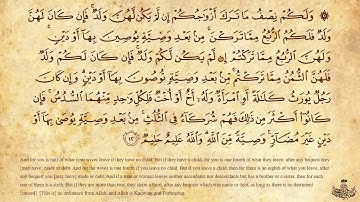 ۞ وَلَكُمْ نِصْفُ مَا تَرَكَ أَزْوَٰجُكُمْ إِن لَّمْ يَكُن لَّهُنَّ وَلَدٌ فَإِن كَانَ لَهُنَّ
وَلَدٌ فَلَكُمُ ٱلرُّبُعُ مِمَّا تَرَكْنَ مِنۢ بَعْدِ وَصِيَّةٍ يُوصِينَ بِهَآ أَوْ دَيْنٍ
وَلَهُنَّ ٱلرُّبُعُ مِمَّا تَرَكْتُمْ إِن لَّمْ يَكُن لَّكُمْ وَلَدٌ فَإِن كَانَ لَكُمْ وَلَدٌ
فَلَهُنَّ ٱلثُّمُنُ مِمَّا تَرَكْتُم مِّنۢ بَعْدِ وَصِيَّةٍ تُوصُونَ بِهَآ أَوْ دَيْنٍ وَإِن كَانَ
رَجُلٌ يُورَثُ كَلَٰلَةً أَوِ ٱمْرَأَةٌ وَلَهُۥٓ أَخٌ أَوْ أُخْتٌ فَلِكُلِّ وَٰحِدٍ مِّنْهُمَا ٱلسُّدُسُ فَإِن
كَانُوٓا۟ أَكْثَرَ مِن ذَٰلِكَ فَهُمْ شُرَكَآءُ فِى ٱلثُّلُثِ مِنۢ بَعْدِ وَصِيَّةٍ يُوصَىٰ بِهَآ أَوْ
دَيْنٍ غَيْرَ مُضَآرٍّ وَصِيَّةً مِّنَ ٱللَّهِ وَٱللَّهُ عَلِيمٌ حَلِيمٌ ١٢
And for you is half of what your wives leave if they have no child. But if they have a child, for you is one fourth of what they leave, after any bequest they
[may have] made or debt. And for the wives is one fourth if you leave no child. But if you leave a child, then for them is an eighth of what you leave, after
any bequest you [may have] made or debt. And if a man or woman leaves neither ascendants nor descendants but has a brother or a sister, then for each
one of them is a sixth. But if they are more than two, they share a third, after any bequest which was made or debt, as long as there is no detriment
[caused]. [This is] an ordinance from Allah, and Allah is Knowing and Forbearing.